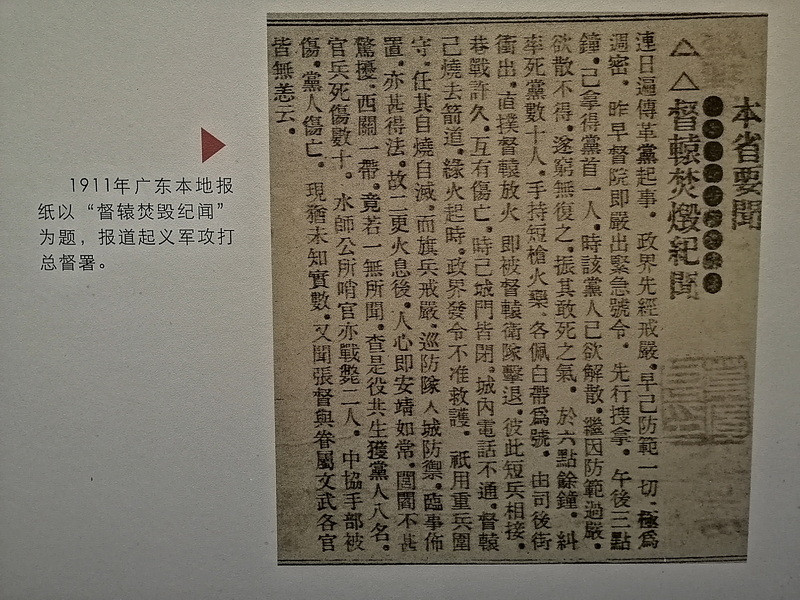 1911年广东本地报
纸以“督辕焚毁纪闻”
为题，报道起义军攻打
总督署。
本省要聞
△△督轅焚燬紀聞
連日遍傳革黨起事。政界先經戒嚴。早已防範一切、極爲
週密。昨早督院即嚴出緊急號令。先行搜拿。午後三點
鐘。已拿得黨首一人。時該黨人已欲解散。繼因防範過嚴。
欲散不得。遂窮無復之。振其敢死之氣。於六點餘鐘。糾
率死黨數十人。手持短槍火藥、各佩白帶爲號。由司後街
衝出。直撲督轅放火、即被督轅衛隊擊退。彼此短兵相接。
巷戰許久。互有傷亡。時已城門皆閉。城內電話不通。督轅
已燒去箭道。緣火起時。政界發令不准救護。祇用重兵圍
守。任其自燒自滅。而旗兵戒嚴。巡防隊入城防禦。臨事佈
置。亦甚得法。故二更火息後。人心即安靖如常。閭閻不甚
驚擾。西關一帶。竟若一無所聞。查是役共生獲黨人八名。
官兵死傷數十。水師公所哨官亦戰斃二人。中協手部被
傷。黨人傷亡。現猶未知實數。又聞張督與眷屬文武各官
皆無恙云。